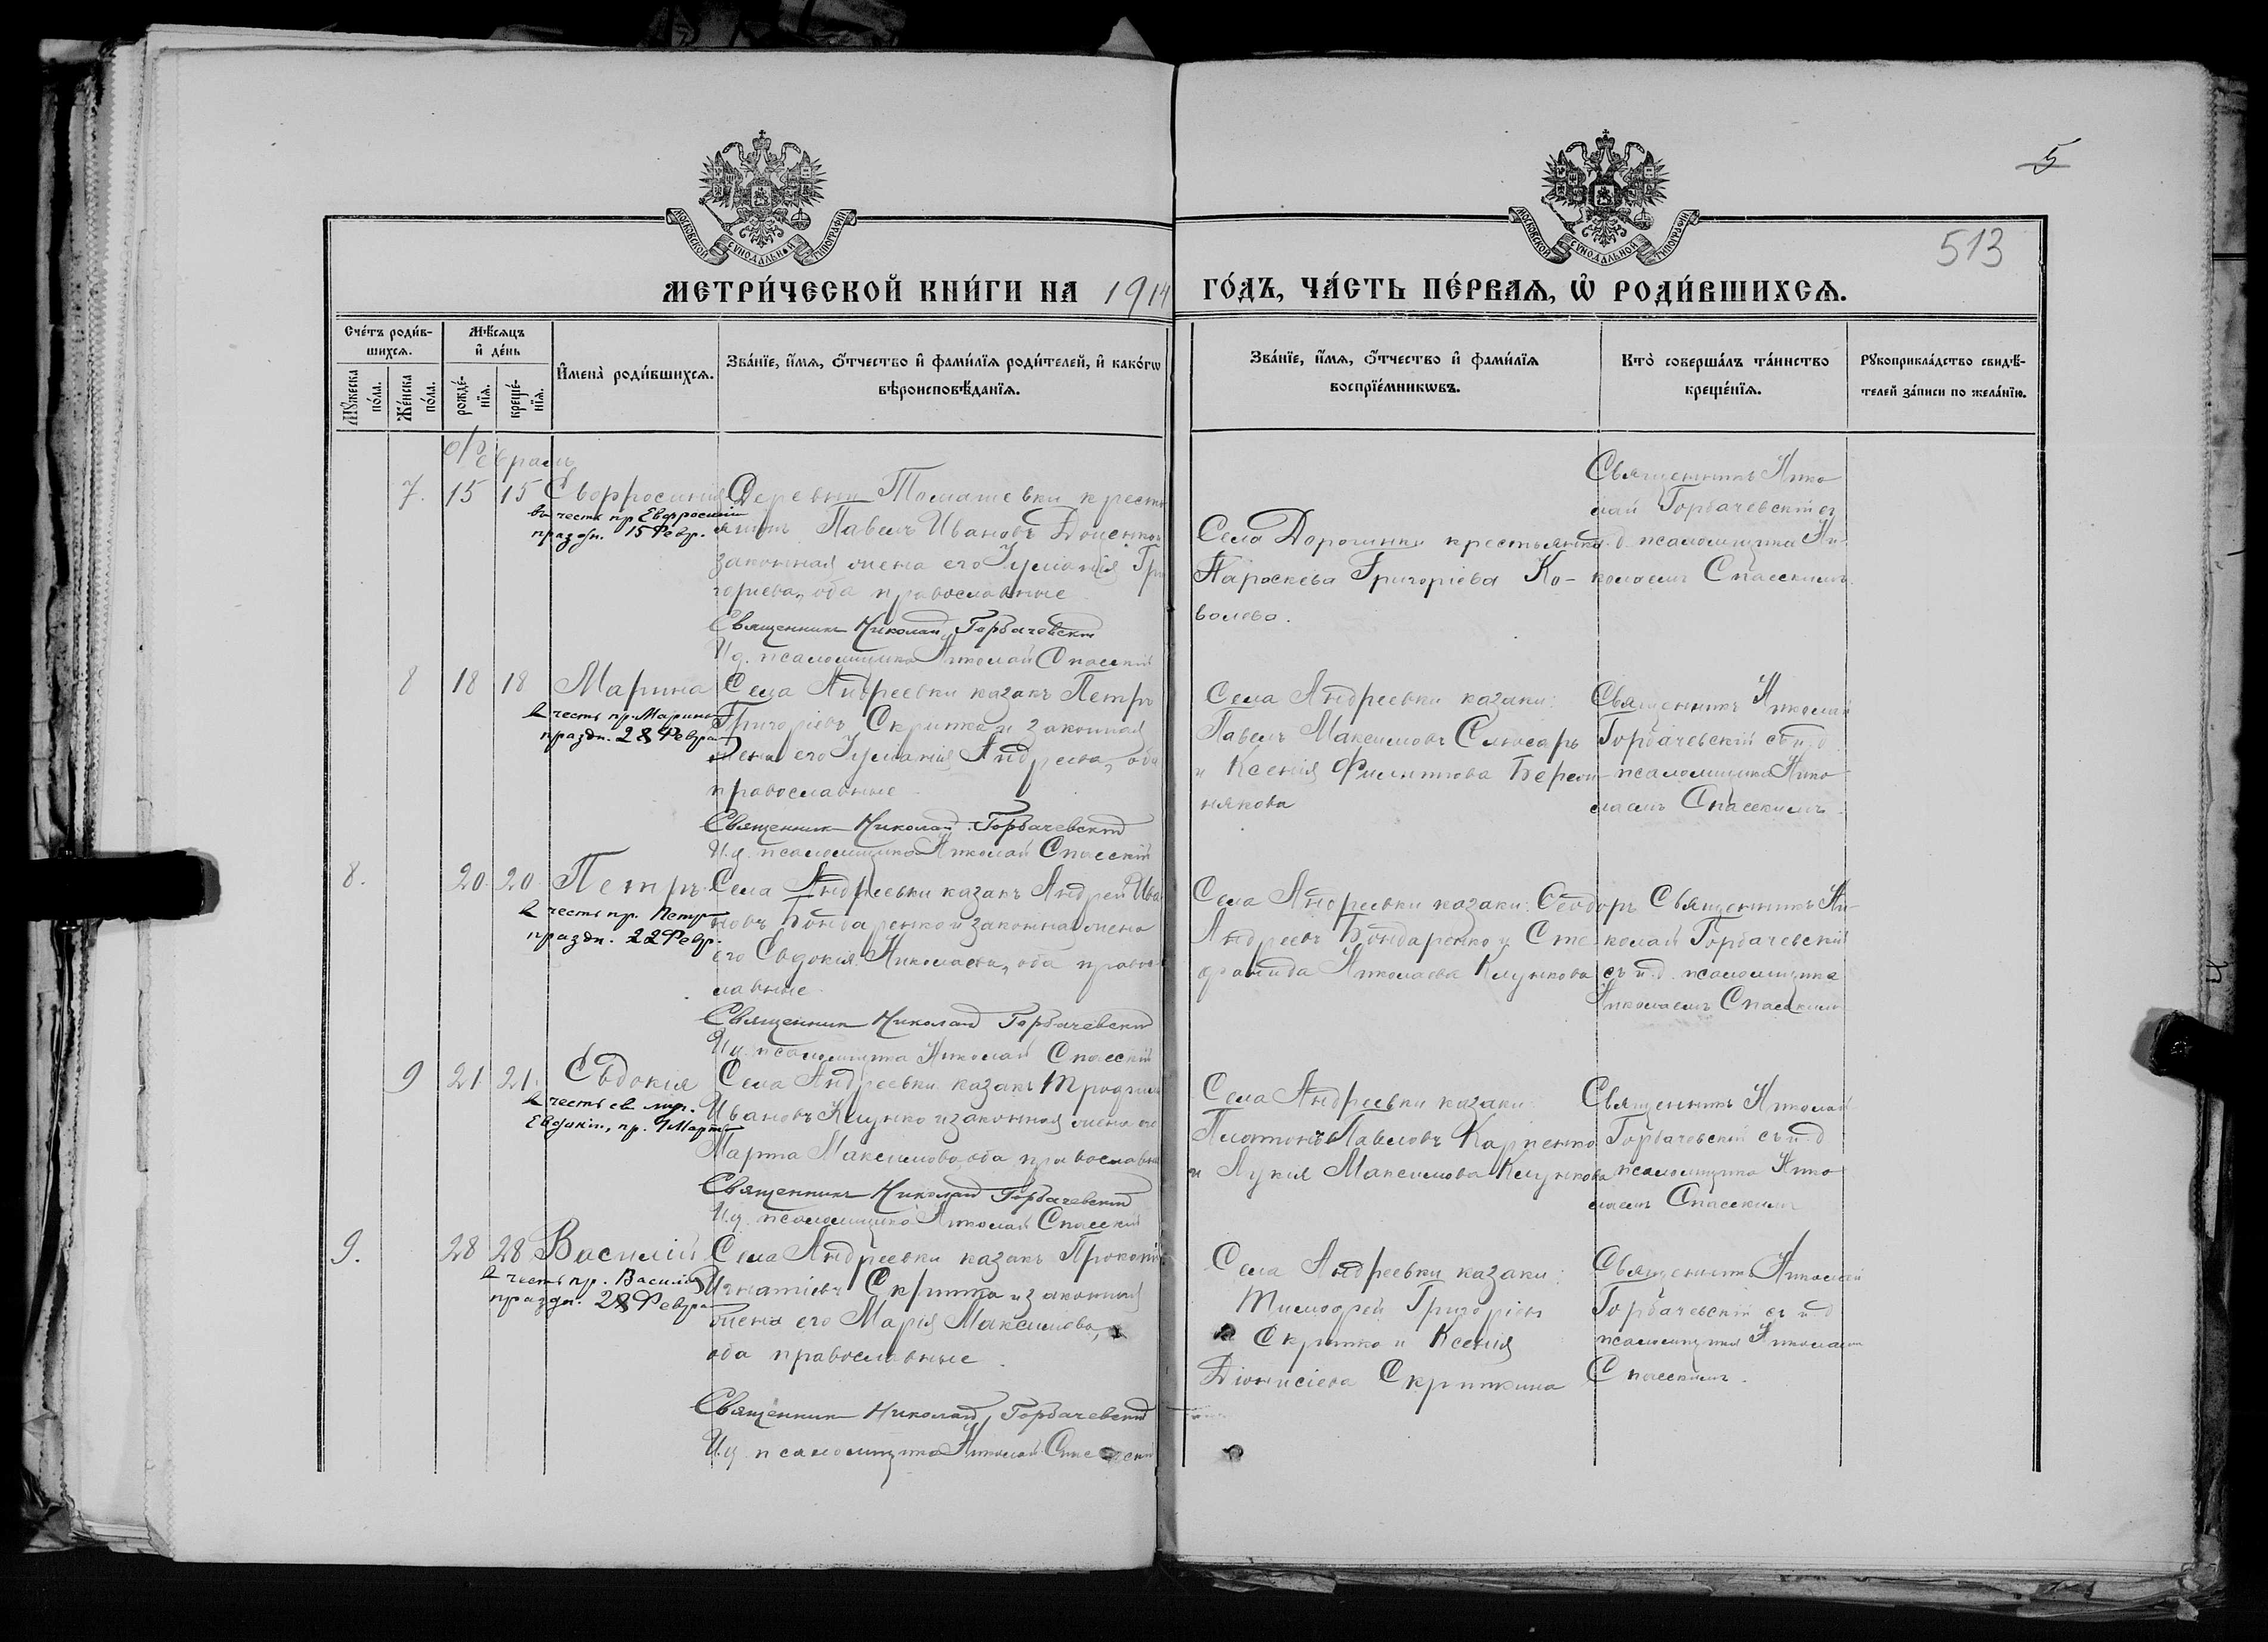 5
513
МОСКОВСКОЙ СѴНОДАЛЬНОЙ ТИПОГРАФІИ
МОСКОВСКОЙ СѴНОДАЛЬНОЙ ТИПОГРАФІИ
МЕТРИ́ЧЕСКОЙ КНИ́ГИ НА 1914 ГО́ДЪ, ЧА́СТЬ ПЕ́РВАѦ, Ѡ҆ РОДИ́ВШИХСѦ.
Сче́тъ роди́в-
шихсѧ.
Мꙋ́жеска по́ла.
Же́нска по́ла.
Мѣ́сѧцъ
и҆ де́нь
рожде́-
нїѧ.
креще́-
нїѧ.
И҆мена̀ роди́вшихсѧ.
Зва́нїе, и҆́мѧ, ѻ҆́тчество и҆ фами́лїѧ роди́телей, и҆ како́гѡ
вѣроисповѣ́данїѧ.
Зва́нїе, и҆́мѧ, ѻ҆́тчество и҆ фами́лїѧ
воспрїе́мникѡвъ.
Кто̀ соверша́лъ та́инство
креще́нїѧ.
Рꙋкоприкла́дство свидѣ́-
телей за́писи по жела́нїю.
Февраль
7. 15 15 Евфросинія
въ честь пр Евфросиніи
праздн. 15 Февр.
Деревни Томашевки крестья
янинъ Павелъ Ивановъ Доценко и
законная жена его Іуліанія Гри
горіева, оба православные
Священникъ Николай Горбачевскій
И.д. псаломщика Николай Спасскій
Села Дорогинки крестьянка
Параскева Григоріева Ко-
валева.
Священникъ Нико
лай Горбачевскій съ
и.д. псаломщика Ни-
колаемъ Спасскимъ.
8 18 18 Марина
въ честь пр. Марины
праздн. 28 Февра
Села Андреевки казакъ Петръ
Григоріевъ Скрипка и законная
жена его Іуліанія Андреева, оба
православные
Священникъ Николай Горбачевскій
И.д. псаломщика Николай Спасскій
Села Андреевки казаки:
Павелъ Максимовъ Слюсарь
и Ксенія Филиппова
някова
Священникъ Николай
Горбачевскій съ и.д
псаломщика Нико
лаемъ Спасскимъ
8. 20 20 Петръ
въ честь пр. Петра
праздн. 22 Февр.
Села Андреевки казакъ Андрей Ива
новъ Бондаренко и законная жена
его Евдокія Николаева, оба правос
лавные
Священникъ Николай Горбачевскій
И.д. псаломщика Николай Спасскій
Села Андреевки казаки: Ѳеодоръ
Андреевъ Бондаренко и Сте
фанида Николаева Клункова
Священникъ Ни-
колай Горбачевскій
съ и.д. псаломщика
Николаемъ Спасскимъ
9 21 21. Евдокія
въ честь св муч.
Евдокіи, пр. 1 Марта
Села Андреевки казакъ Трофимъ
Ивановъ Клунко и законная жена его
Марѳа Максимова, оба православные
Священникъ Николай Горбачевскій
И.д. псаломщика Николай Спасскій
Села Андреевки казаки:
Платонъ Павловъ Карпенко
и Лукія Максимова Клункова
Священникъ Николай
Горбачевскій съ и.д
псаломщика Нико
лаемъ Спасскимъ
9. 28 28 Василій
въ честь пр. Василія
праздн. 28 Февра
Села Андреевки казакъ Прокопій
Игнатіевъ Скрипка и законная
жена его Марія Максимова,
оба православные
Священникъ Николай Горбачевскій
И.д. псаломщика Николай Спасскій
Села Андреевки казаки:
Тимофей Григоріевъ
Скрипка и Ксенія
Діонисіева Скрипкина
Священникъ Николай
Горбачевскій съ и.д
псаломщика Николаемъ
Спасскимъ.